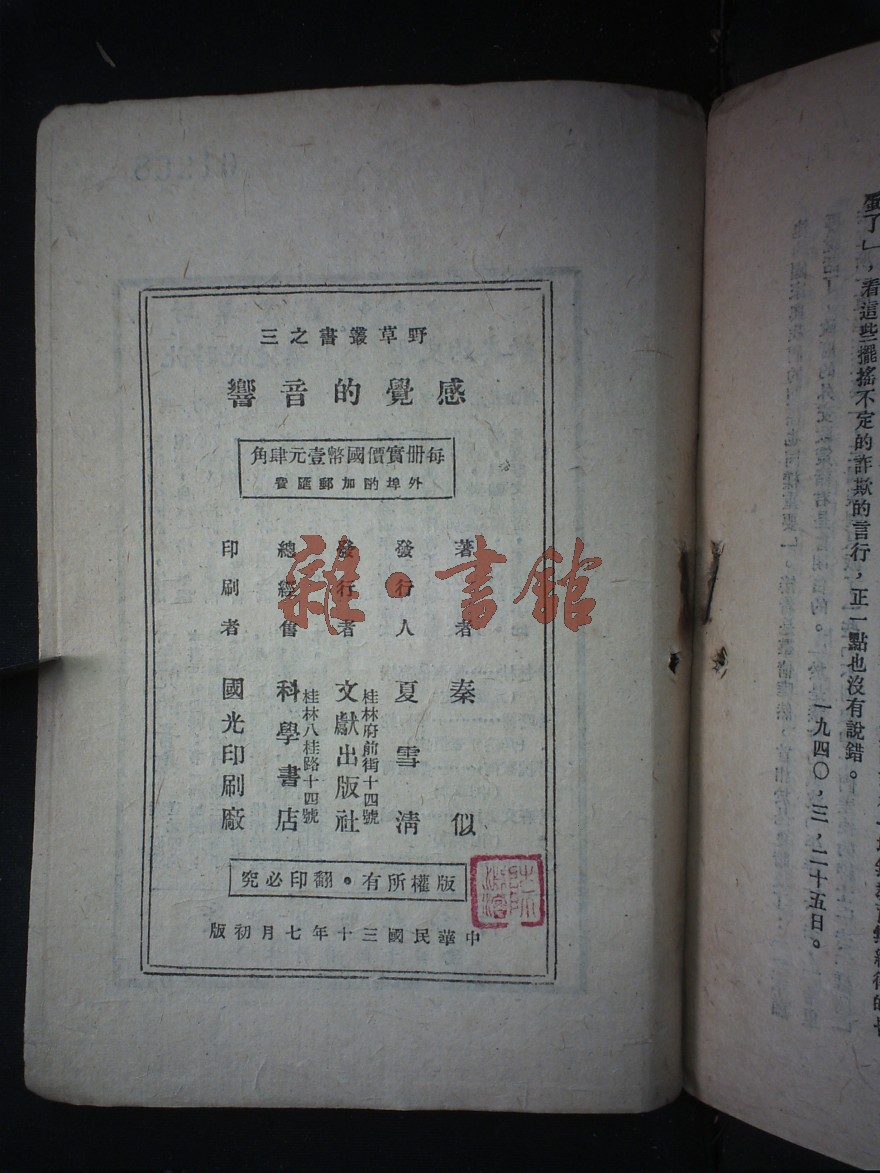 野草叢書之三
感覺的音響
每册實價國幣壹元肆角
外埠酌加郵匯費
著者 秦似
發行人 夏雪清
發行者 文獻出版社
桂林府前街十四號
總經售 科學書店
桂林八桂路十四號
印刷者 國光印刷廠
版權所有·翻印必究
中華民國三十年七月初版
雜·書館
了」，看這些擺搖不定的詐欺的言行，正一點也沒有說錯。
一九四〇，三，二十五日。